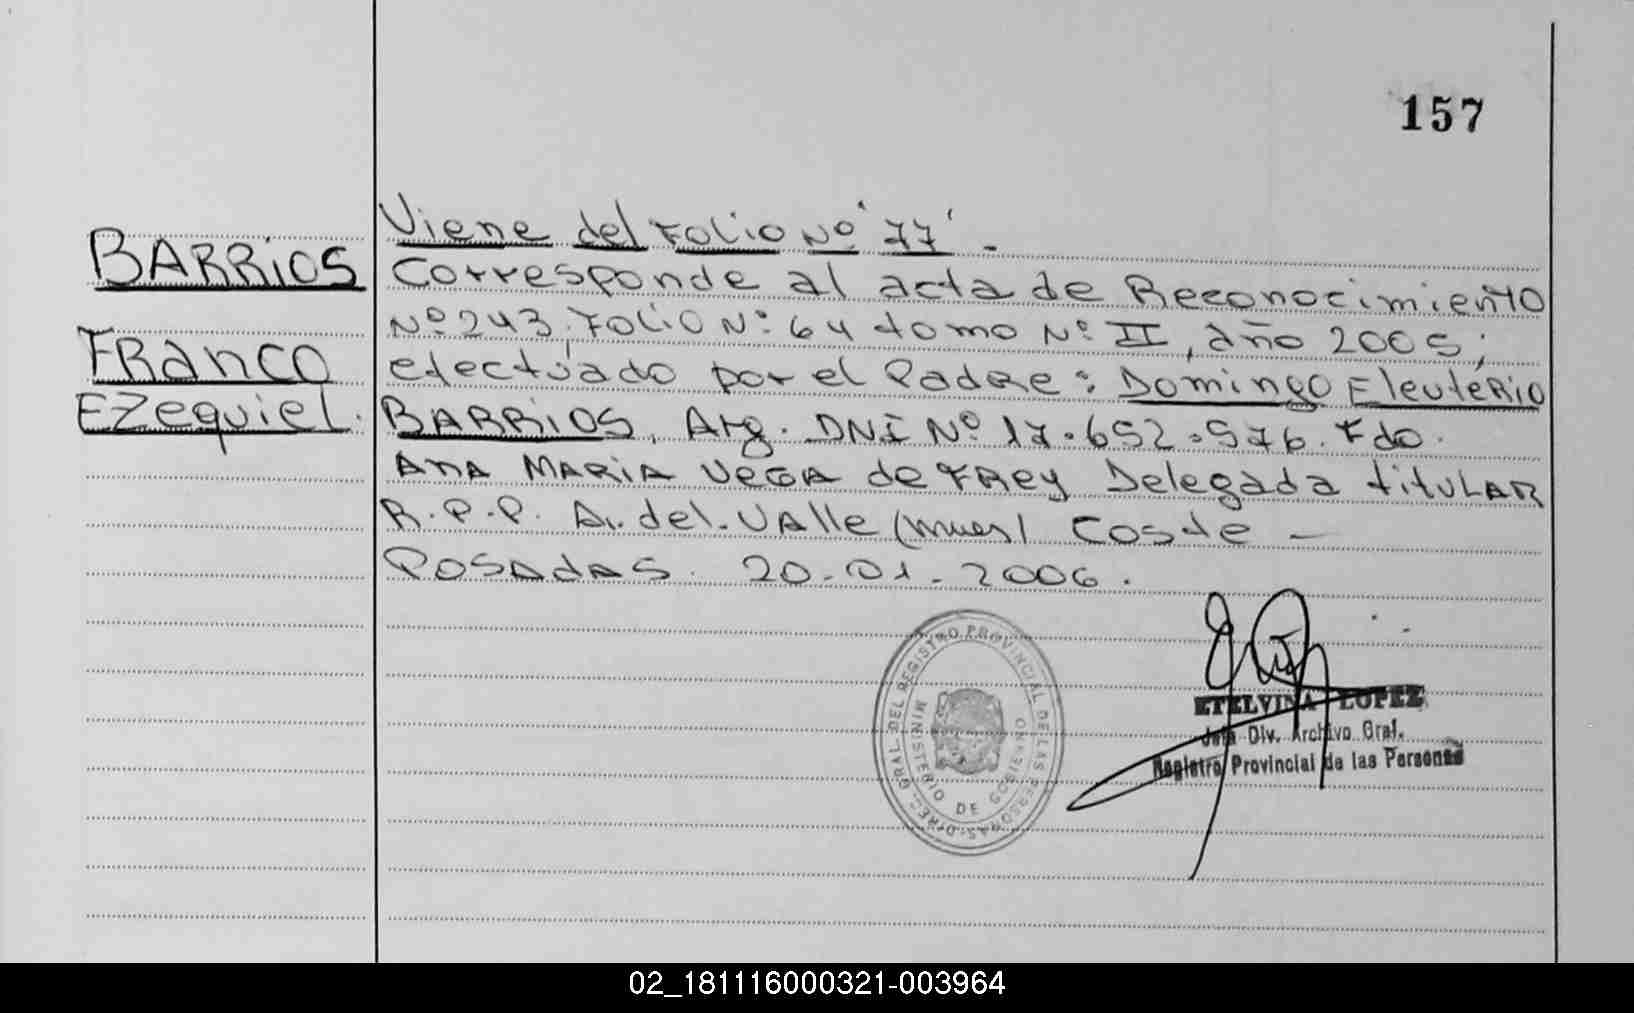 157
BARRIOS
FRANCO
EZequiel.
Viene del Folio Nº "77".
Corresponde al acta de Reconocimiento
Nº 243. Folio Nº 64 tomo Nº II, año 2005;
efectuado por el Padre: Domingo Eleuterio
BARRIOS. Arg. DNI Nº 17.652.576. Fdo.
Ana MARIA VEGA de FRey Delegada titULAR
R.P.P. A. del. VAlle (Mnes) Coste -
POSAdAS. 20-01-2006.
DIREC. GRAL. DEL REGISTRO PROVINCIAL DE LAS PERSONAS
MINISTERIO DE GOBIERNO
ETELVINA LOPEZ
Jefa Div. Archivo Gral.
Registro Provincial de las Personas
02_181116000321-003964